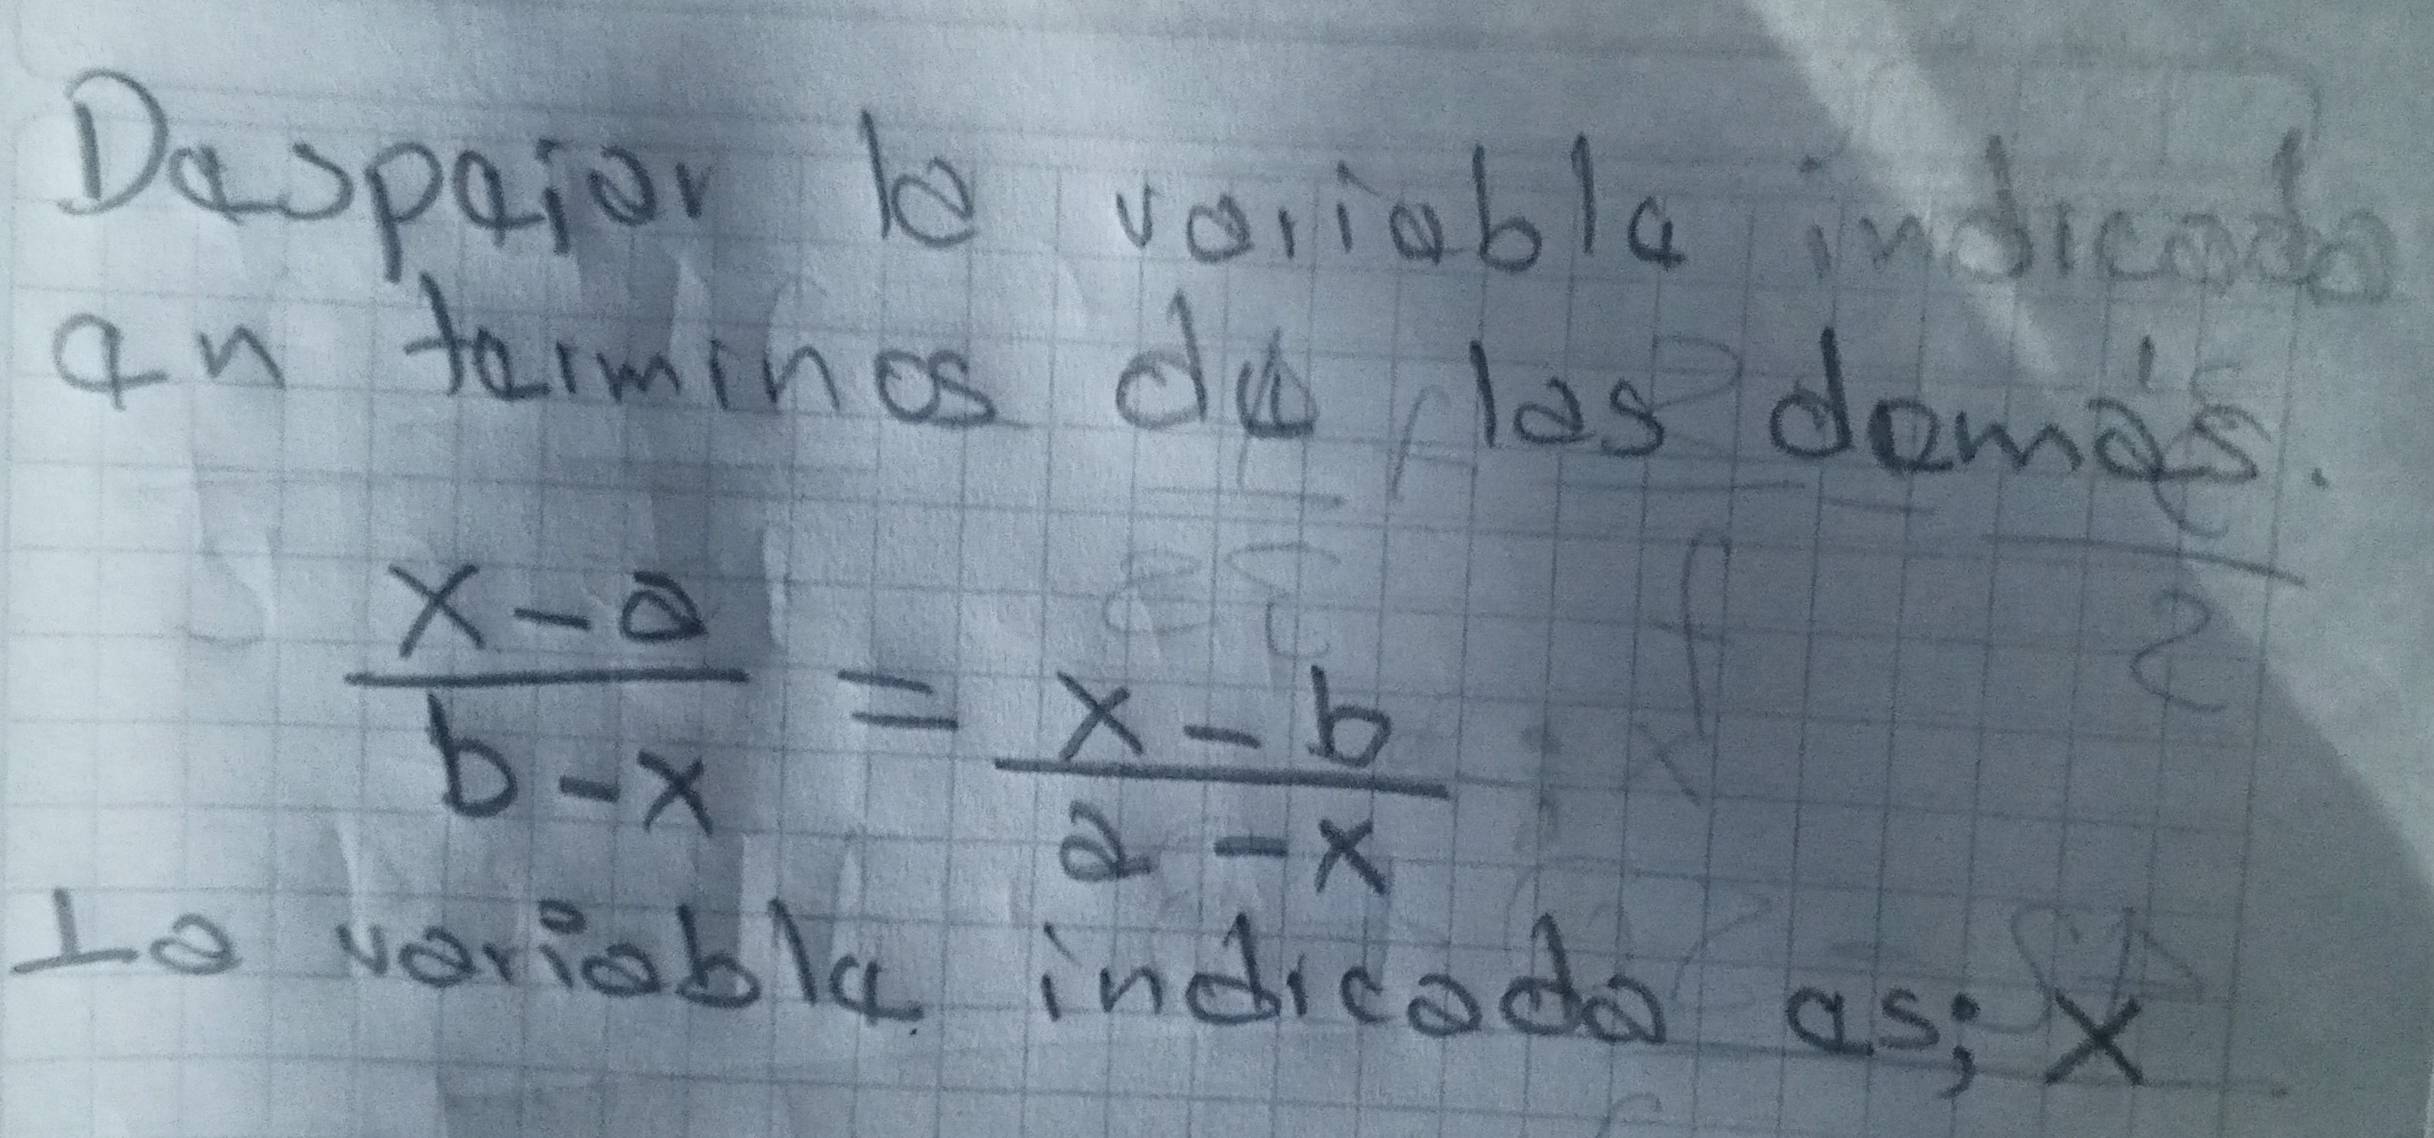 Despejar la variable indicada
en terminos de las demás.
x-a / b-x = x-b / a-x
La variable indicada es; x